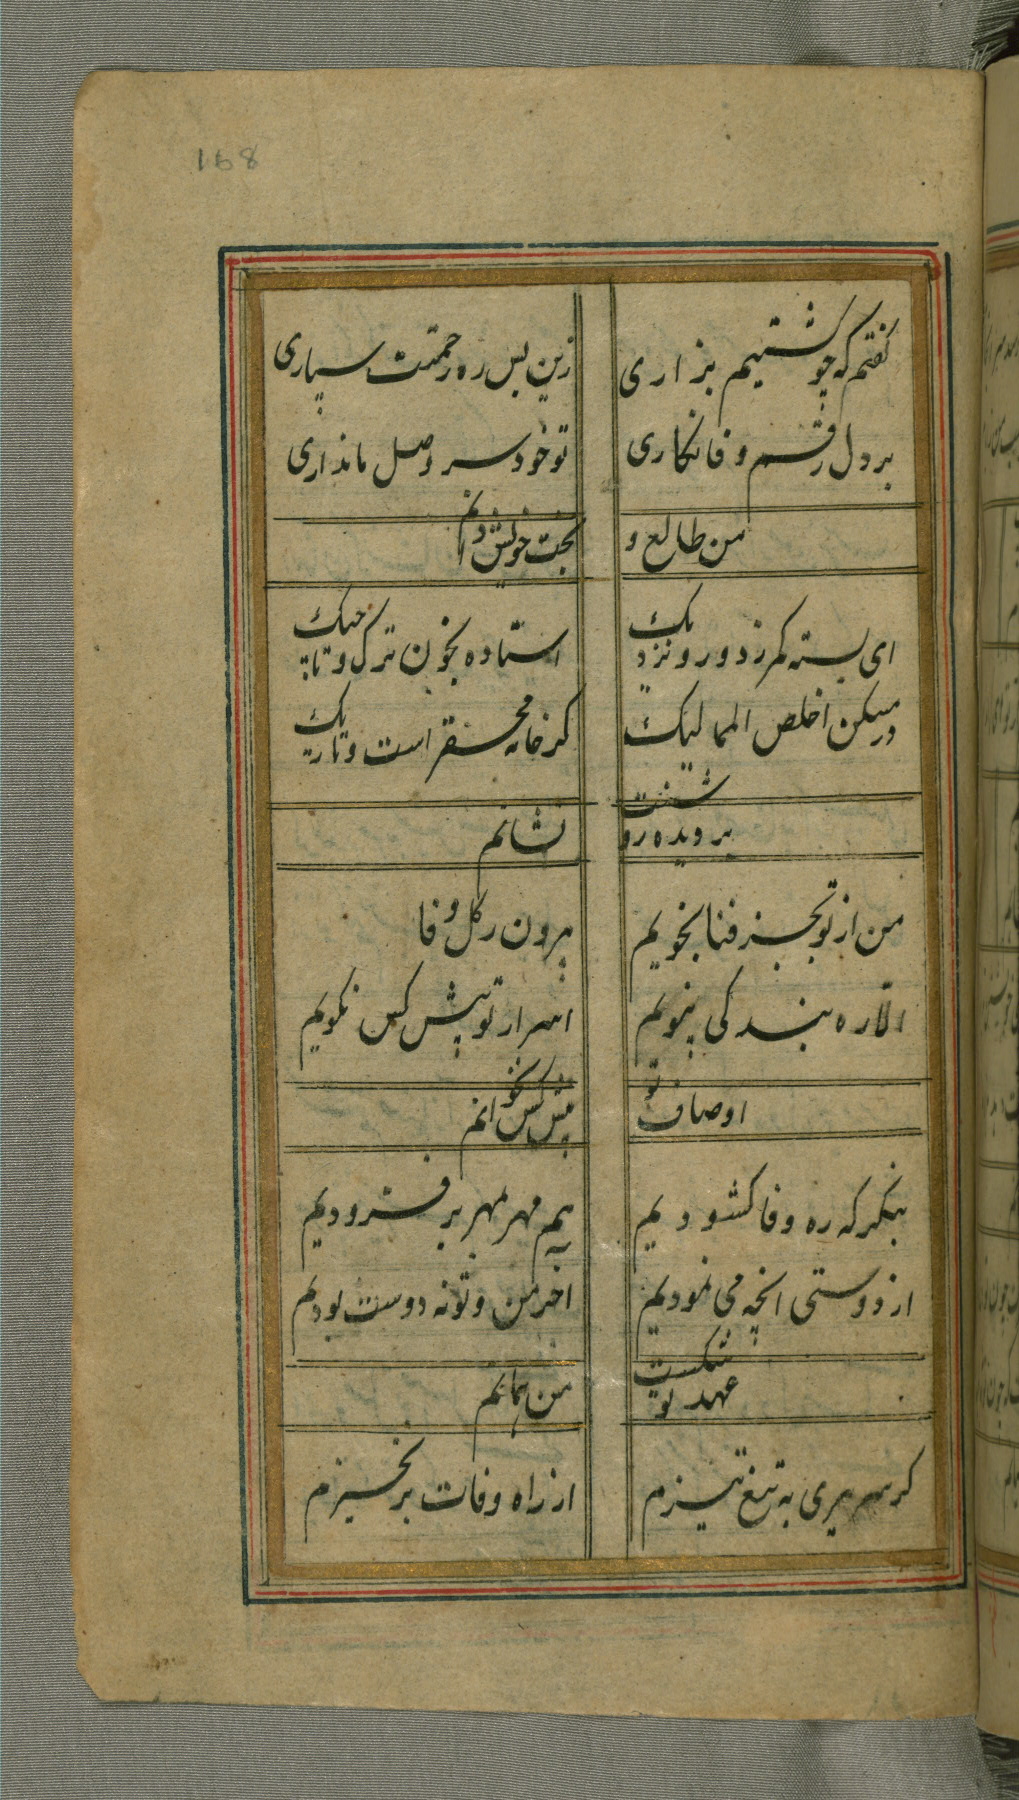 168
گفتم که چو کشتیم بزاری
زین پس ره رحمت سپاری
بر دل رقم وفا نکاری
تو خود سر وصل ما نداری
من طالع و
بخت خویش دانم
ای بسته کمر ز دور و نزدیک
استاده بخون ترک و تاجیک
در مسکن اخلص الممالیک
کر خانه محقر است و تاریک
بر دیده روشنت
نشانم
من از تو بجز فنا نجویم
بیرون ز گل وفا
الا ره بندکی نپویم
اسرار تو پیش کس نکویم
اوصاف تو
پیش کس نخوانم
بنکر که ره وفا کشودیم
هم مهر بمهر بر فزودیم
از دوستی انچه می نمودیم
اخر من و تو نه دوست بودیم
عهد تو شکست
من همانم
کر سر ببری به تیغ تیزم
از راه وفات بر نخیزم